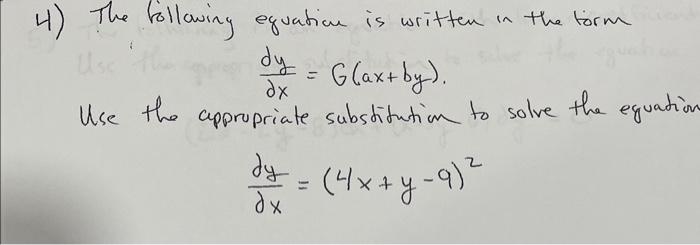 4) The following equation is written in the form
dy/dx = G(ax+by).
Use the appropriate substitution to solve the equation
dy/dx = (4x+y-9)²